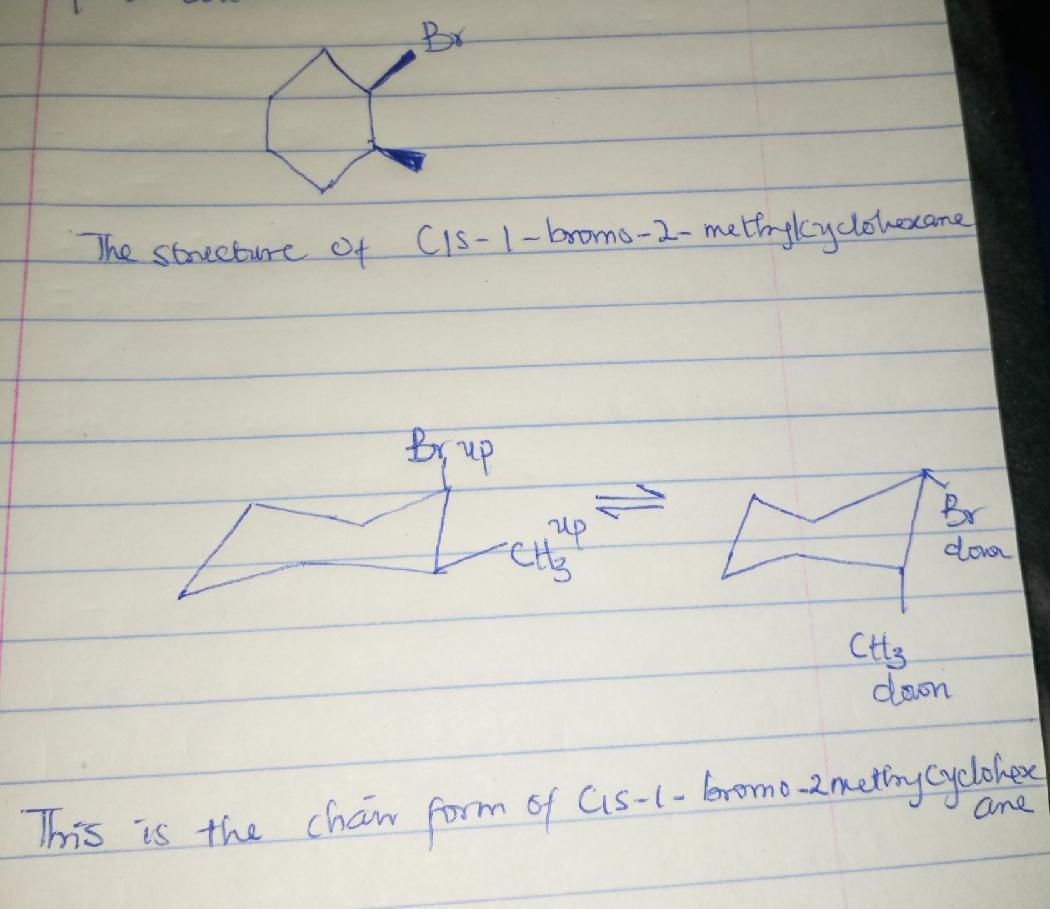 Br
The structure of Cis-1-bromo-2-methylcyclohexane
Br up
up
CH3
Br
down
CH3
down
This is the chair form of Cis-1-bromo-2methycyclohex
ane